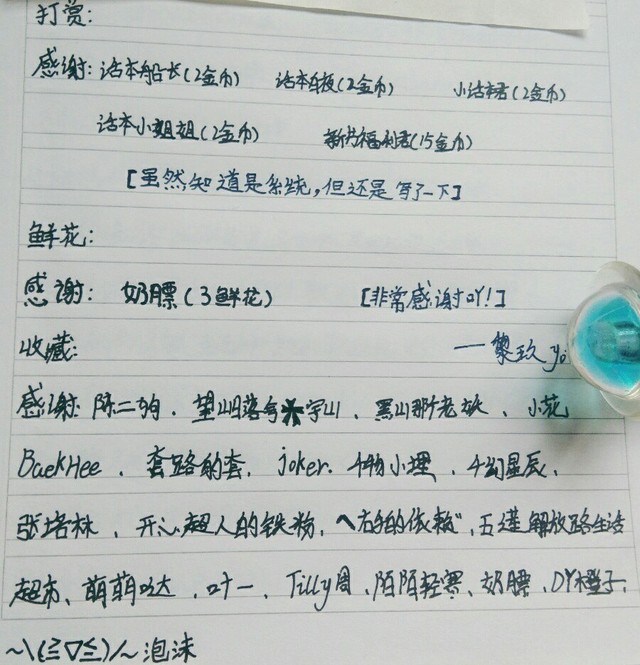 打赏:
感谢: 话本船长(2金币) 话本白板(2金币) 小话本君(2金币)
话本小姐姐(2金币) 新书福利君(15金币)
[虽然知道是系统,但还是写了一下]
鲜花:
感谢: 奶膘(3鲜花) [非常感谢吖!]
收藏:
一黎玖yo
感谢: 陈二狗、 、黑山那个老妖、小花
BaekHee、套路的套、joker. 小埋、 幻星辰、
张培林、开心超人的铁粉, 的依赖",五莲解放路生活
超市、萌萌哒、叶一、Tilly周、陌陌轻寒、奶膘、DY橙子、
~\(≧▽≦)/~泡沫